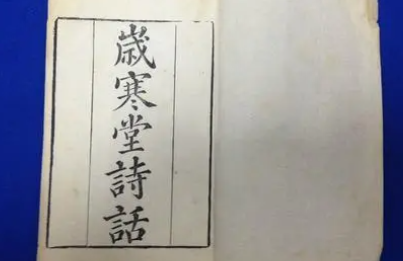 歲寒堂詩話